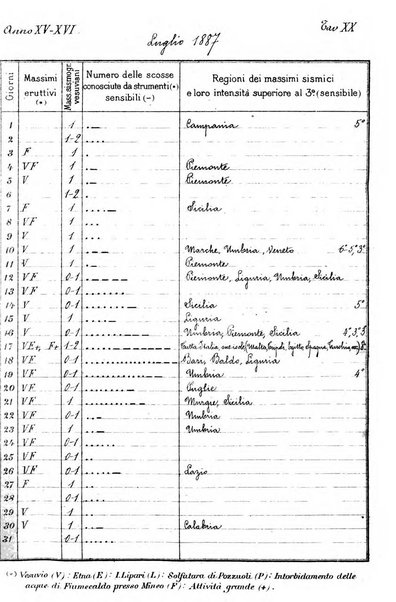 Anno XV-XVI Tav XX
Luglio 1887
Giorni Massimi eruttivi (•) Mass. sismogr. vesuviani Numero delle scosse conosciute da strumenti (•) sensibili (–) Regioni dei massimi sismici e loro intensità superiore al 3º (sensibile)
1 1 Campania 5º
2 1-2
3 F 1
4 VF 1 Piemonte
5 V 1 Piemonte
6 1-2
7 F 1 Sicilia
8 VF 1
9 V 1
10 V 1 Marche, Umbria, Veneto 6º 5º, 3º
11 V 1 Piemonte
12 VF 0-1 Piemonte, Liguria, Umbria, Sicilia
13 VF 0-1
14 V 0-1 Sicilia 5º
15 V 1 Liguria
16 V 0-1 Umbria, Piemonte, Sicilia 4º, 3º, 3º
17 1-2 Tutta Italia
18 VF 0-1 Bari, Baldo, Liguria
19 VF 0-1 Umbria 4º
20 VF 0-1 Puglie
21 VF 1 Murgie, Sicilia
22 VF 0-1 Umbria
23 VF 0-1 Umbria
24 VF 0-1
25 VF 0-1
26 VF 0-1 Lazio
27 F 1
28 0-1
29 V 1
30 V 1 Calabria
31 0-1
(–) Vesuvio (V): Etna (E): I. Lipari (L): Solfatara di Pozzuoli (P): Intorbidamento delle
acque di Fiumecaldo presso Mineo (F): Attività grande (+).